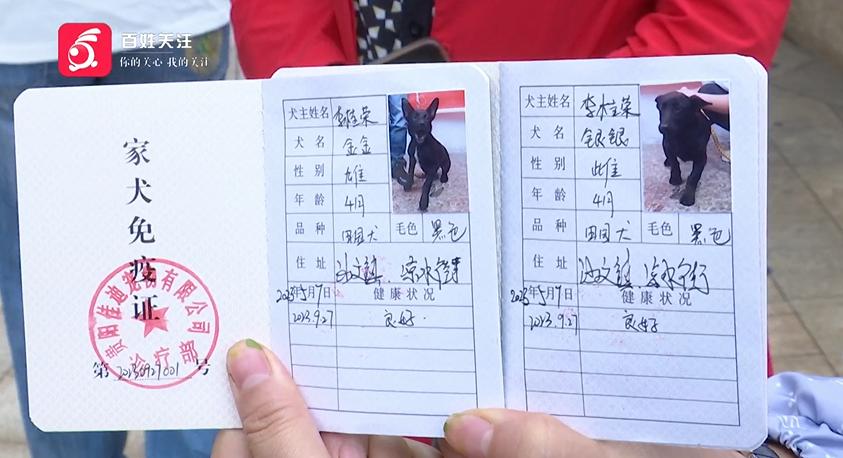 百姓关注
你的关心 我的关注
家犬免疫证
贵阳佳迪宠物有限公司
诊疗部
第20230927001号
犬主姓名 李桂荣
犬名 金金
性别 雄
年龄 4月
品种 田园犬 毛色 黑色
住址
2023年5月7日 健康状况
2023.9.27 良好.
犬主姓名 李桂荣
犬名 银银
性别 雌
年龄 4月
品种 田园犬 毛色 黑色
住址
2023年5月7日 健康状况
2023.9.27 良好